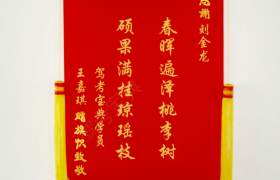 感谢刘金龙
春晖遍泽桃李树
硕果满挂琼瑶枝
驾考宝典学员
王嘉琪 赠旗帜致敬